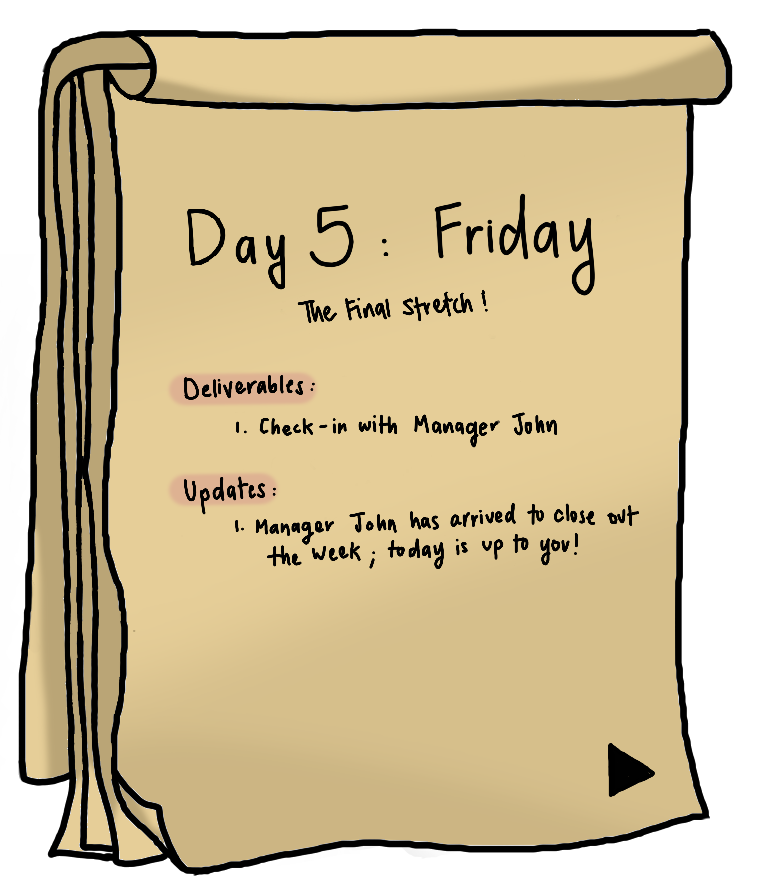 Day 5: Friday
The Final Stretch!
Deliverables:
1. Check-in with Manager John
Updates:
1. Manager John has arrived to close out
the week; today is up to you!